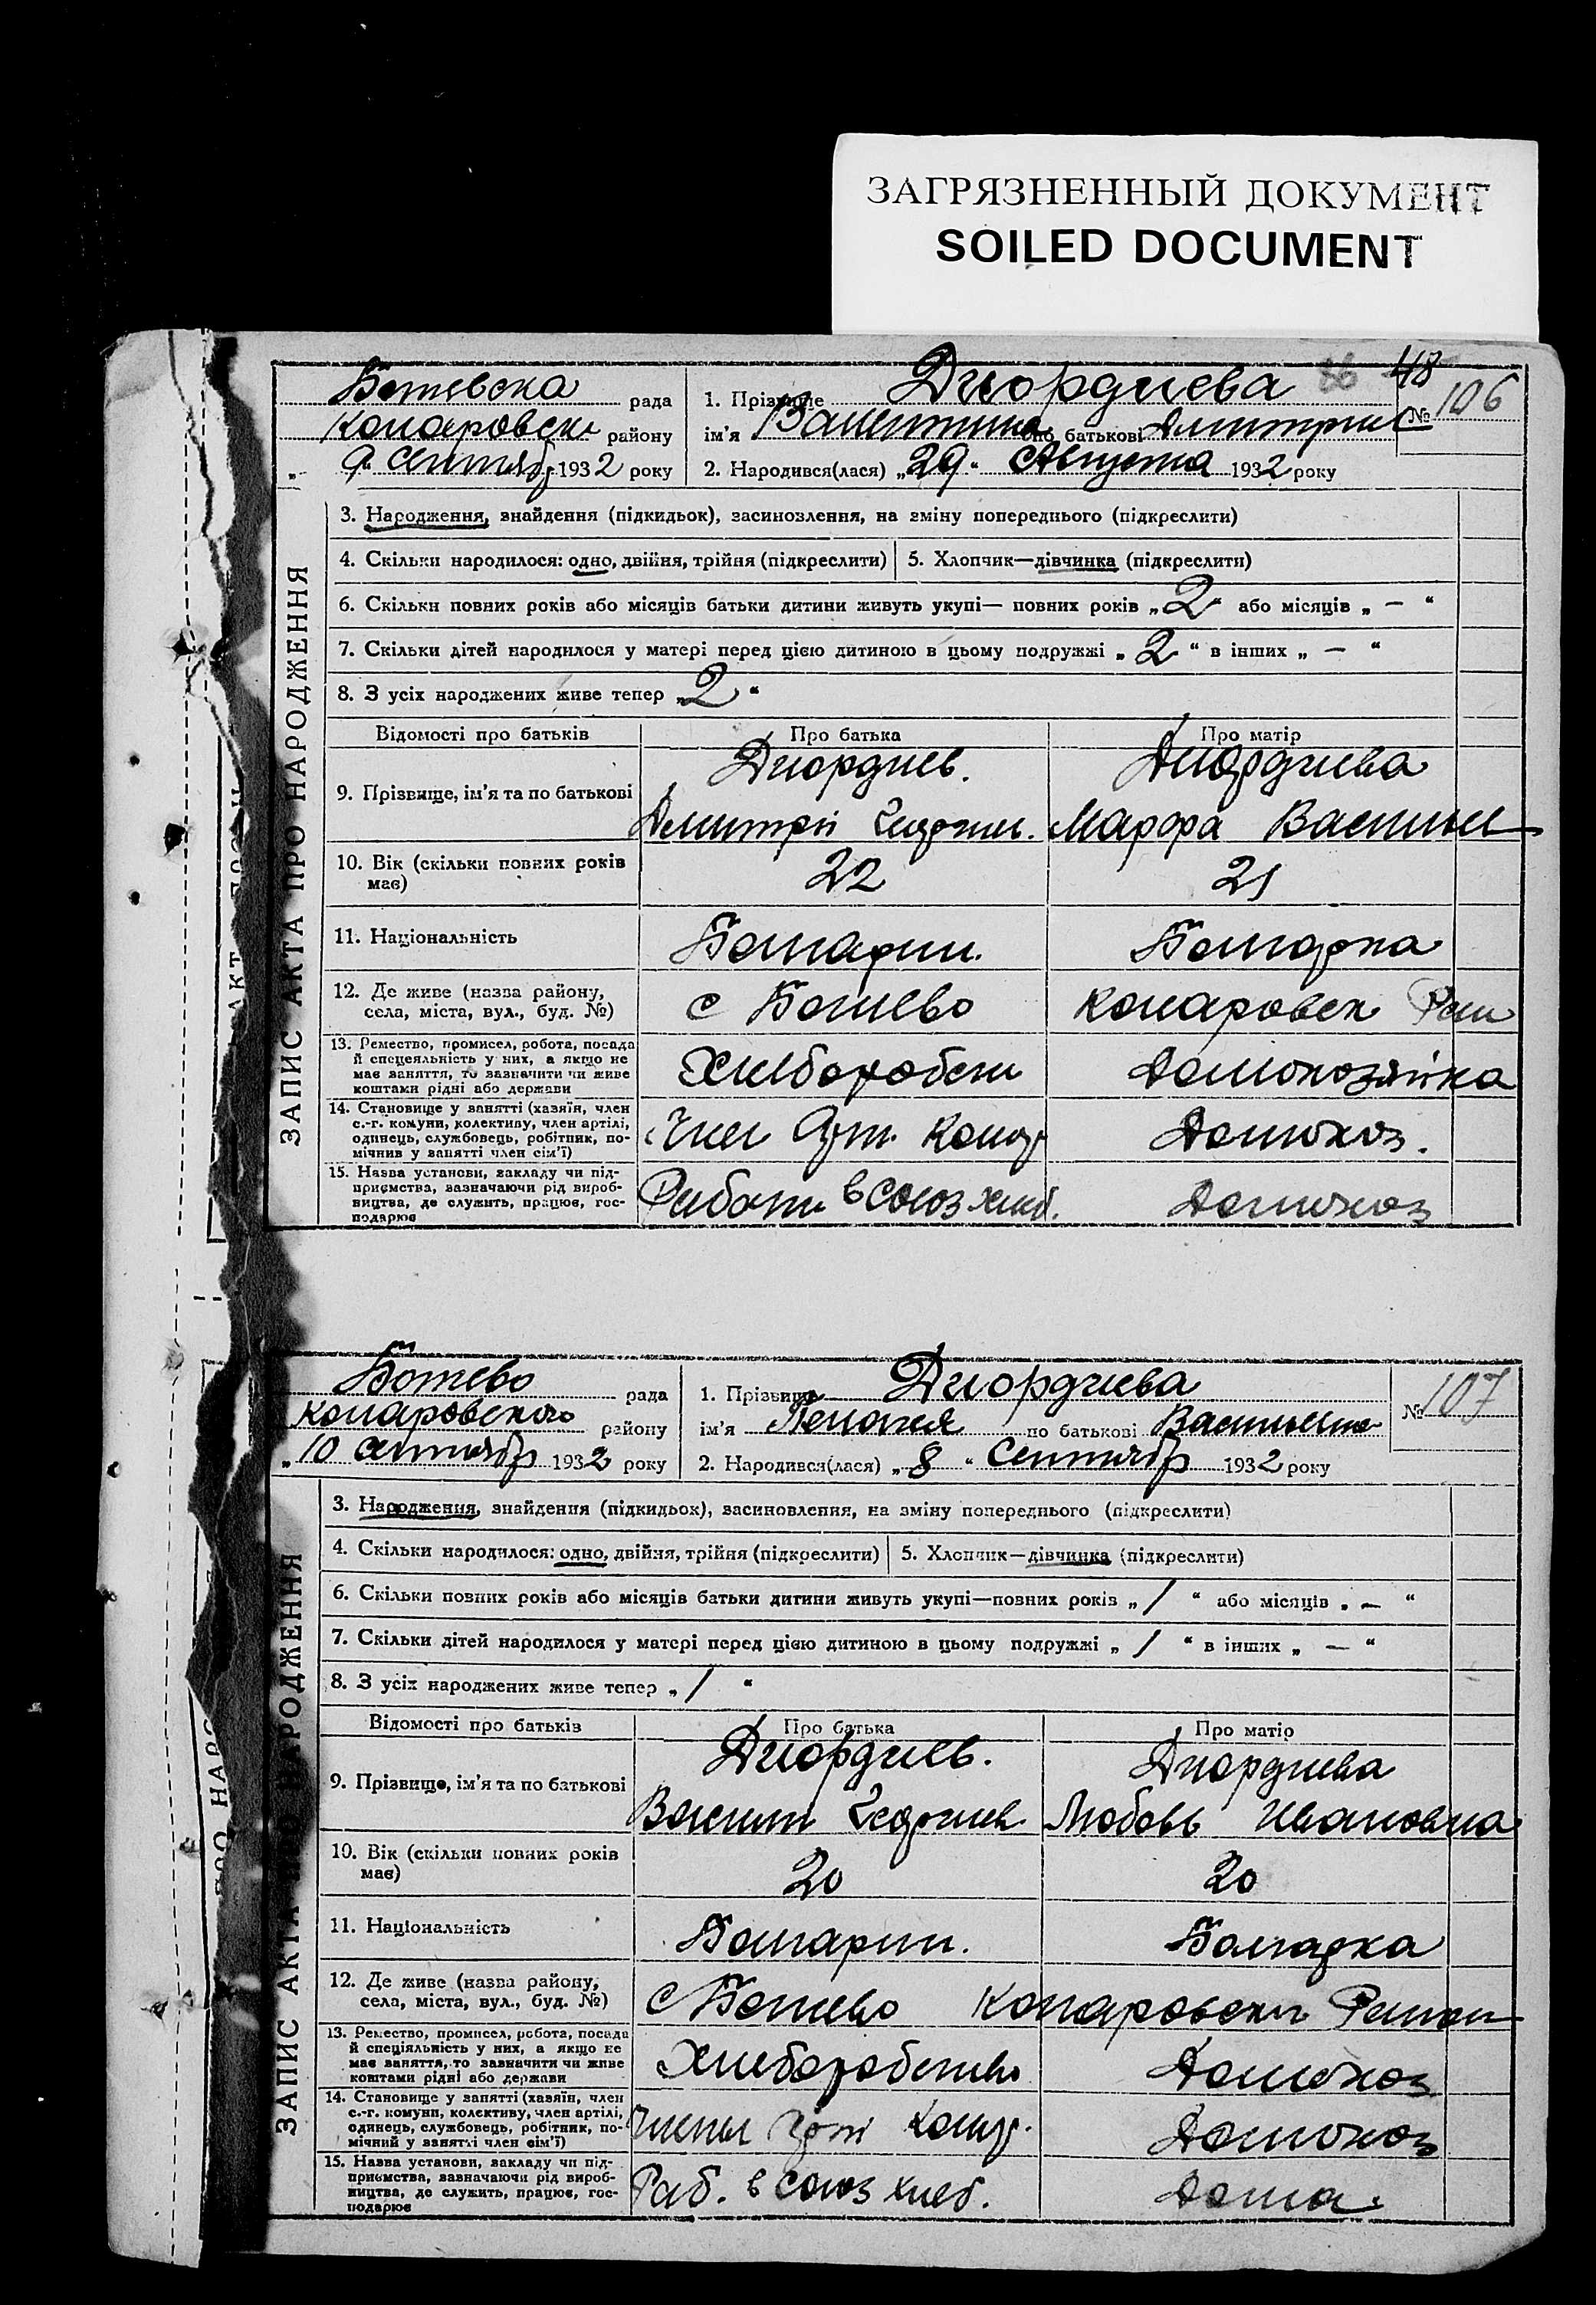 ЗАГРЯЗНЕННЫЙ ДОКУМЕНТ
SOILED DOCUMENT
48
№ 106
Ботевска рада
Коларовск району
„ 9 Сентябр 1932 року
1. Прізвище Дюрдиева
ім'я Валентина по батькові Дмитриев
2. Народився(лася) „29“ Августа 1932 року
ЗАПИС АКТА ПРО НАРОДЖЕННЯ
3. Народження, знайдення (підкидьок), засиновлення, на зміну попереднього (підкреслити)
4. Скільки народилося: одно, двійня, трійня (підкреслити) 5. Хлопчик—дівчинка (підкреслити)
6. Скільки повних років або місяців батьки дитини живуть укупі— повних років „2“ або місяців „ — “
7. Скільки дітей народилося у матері перед цією дитиною в цьому подружжі „ 2 “ в інших „ — “
8. З усіх народжених живе тепер „2“
Відомості про батьків Про батька Про матір
9. Прізвище, ім'я та по батькові
Дюрдиев. Дюрдиева
Дмитрий Марфа Василье
10. Вік (скільки повних років має) 22 21
11. Національність Болгарин. Болгарка
12. Де живе (назва району, села, міста, вул., буд. №) с Ботево Коларовск Рай
13. Ремество, промисел, робота, посада й спецеяльність у них, а якщо не має заняття, то зазначити чи живе коштами рідні або держави Домохозяйка
14. Становище у занятті (хазяїн, член с.-г. комуни, колективу, член артілі, одинець, службовець, робітник, помічник у занятті член сім'ї) Член Арт. Домохоз.
15. Назва установи, закладу чи підприємства, зазначаючи рід виробництва, де служить, працює, господарює в союз хлеб. Домохоз
№ 107
Ботево рада
Коларовского району
„10 Сентябр 1932 року
1. Прізвище Дюрдиева
ім'я Пелагея по батькові Васильевна
2. Народився(лася) „ 8 “ Сентябр 1932 року
ЗАПИС АКТА ПРО НАРОДЖЕННЯ
3. Народження, знайдення (підкидьок), засиновлення, на зміну попереднього (підкреслити)
4. Скільки народилося: одно, двійня, трійня (підкреслити) 5. Хлопчик—дівчинка (підкреслити)
6. Скільки повних років або місяців батьки дитини живуть укупі—повних років „ 1 “ або місяців „ — “
7. Скільки дітей народилося у матері перед цією дитиною в цьому подружжі „ 1 “ в інших „ — “
8. З усіх народжених живе тепер „ 1 “
Відомості про батьків Про батька Про матір
9. Прізвище, ім'я та по батькові
Дюрдиев. Дюрдиева
Василий Любовь Ивановна
10. Вік (скільки повних років має) 20 20
11. Національність Болгарин. Болгарка
12. Де живе (назва району, села, міста, вул., буд. №) с Ботево Коларовски Район
13. Ремество, промисел, робота, посада й спеціяльність у них, а якщо не має заняття, то зазначити чи живе коштами рідні або держави Домохоз
14. Становище у занятті (хазяїн, член с.-г. комуни, колективу, член артілі, одинець, службовець, робітник, помічний у занятті член сім'ї) Домохоз
15. Назва установи, закладу чи підприємства, зазначаючи рід виробництва, де служить, працює, господарює Раб. в союз хлеб. Дома.